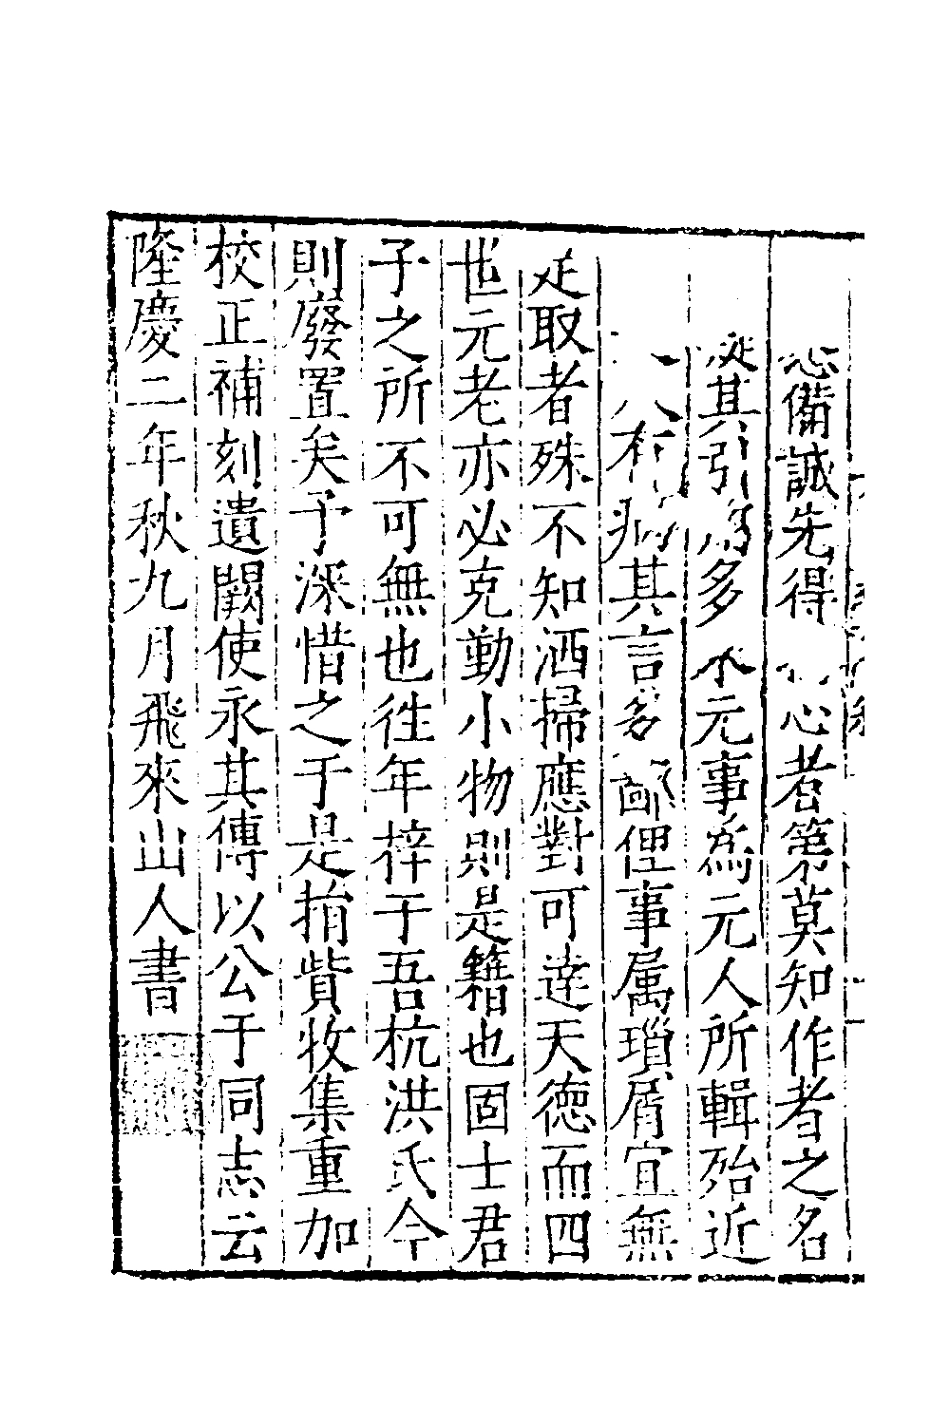 悉備誠先得心者第莫知作者之名
從其引爲多元事為元人所輯殆近
人有其言多鄙俚事属瑣屑宜無
足取者殊不知洒掃應對可達天德而四
也元老亦必克勤小物則是籍也固士君
子之所不可無也徃年梓于吾杭洪氏今
則廢置矣予深惜之于是捐貲收集重加
校正補刻遺闕使永其傳以公于同志云
隆慶二年秋九月飛來山人書